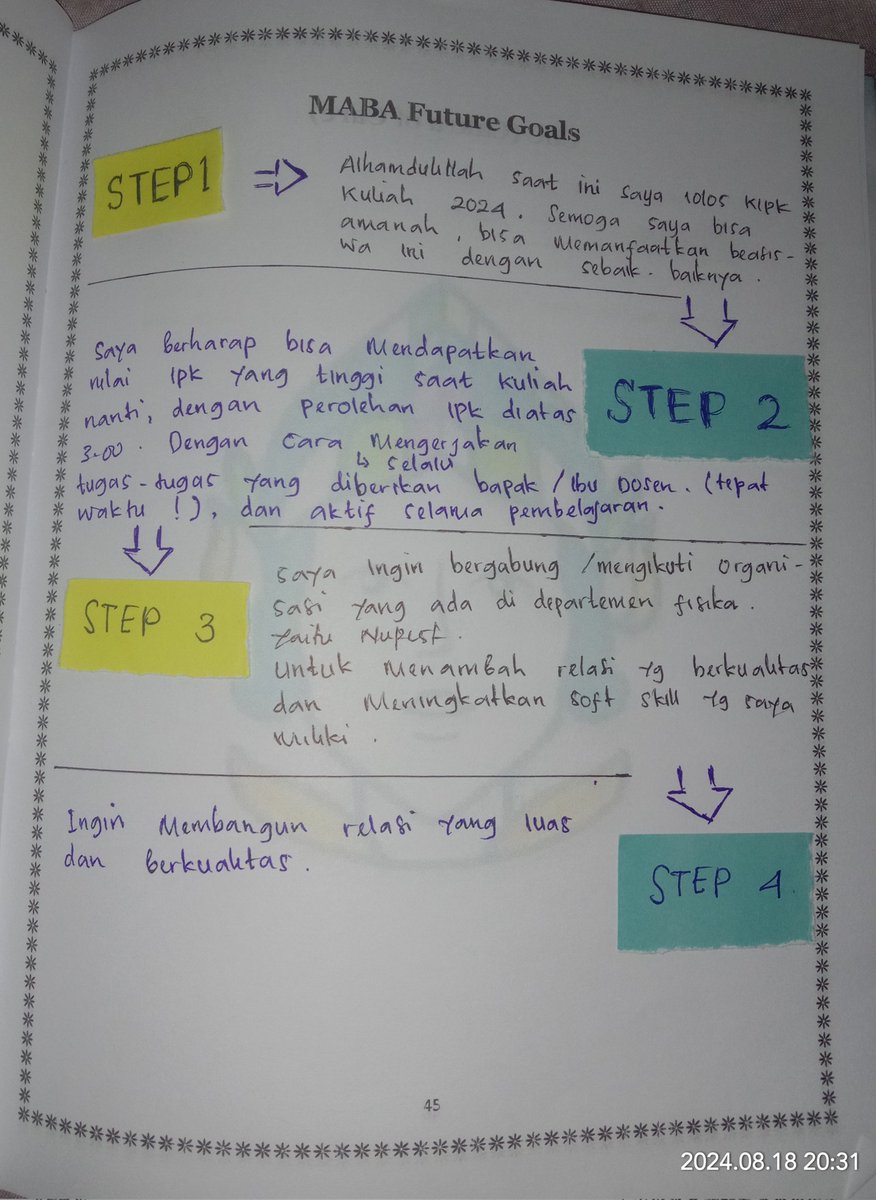 MABA Future Goals
STEP 1
Alhamdulillah saat ini saya lolos KIPK
Kuliah 2024. Semoga saya bisa
amanah, bisa Memanfaatkan beasis-
wa ini dengan sebaik-baiknya.
STEP 2
Saya Berharap bisa Mendapatkan
nilai IPK yang tinggi saat kuliah
nanti, dengan perolehan IPK diatas
3.00. Dengan cara Mengerjakan
↳ selalu
tugas-tugas yang diberikan bapak/Ibu Dosen. (tepat
waktu!), dan aktif selama pembelajaran.
STEP 3
Saya Ingin bergabung /mengikuti organi-
sasi yang ada di departemen fisika.
Yaitu
Untuk Menambah relasi yg berkualitas
dan Meningkatkan soft skill yg saya
miliki.
STEP 4
Ingin Membangun relasi yang luas
dan berkualitas.
45
2024.08.18 20:31